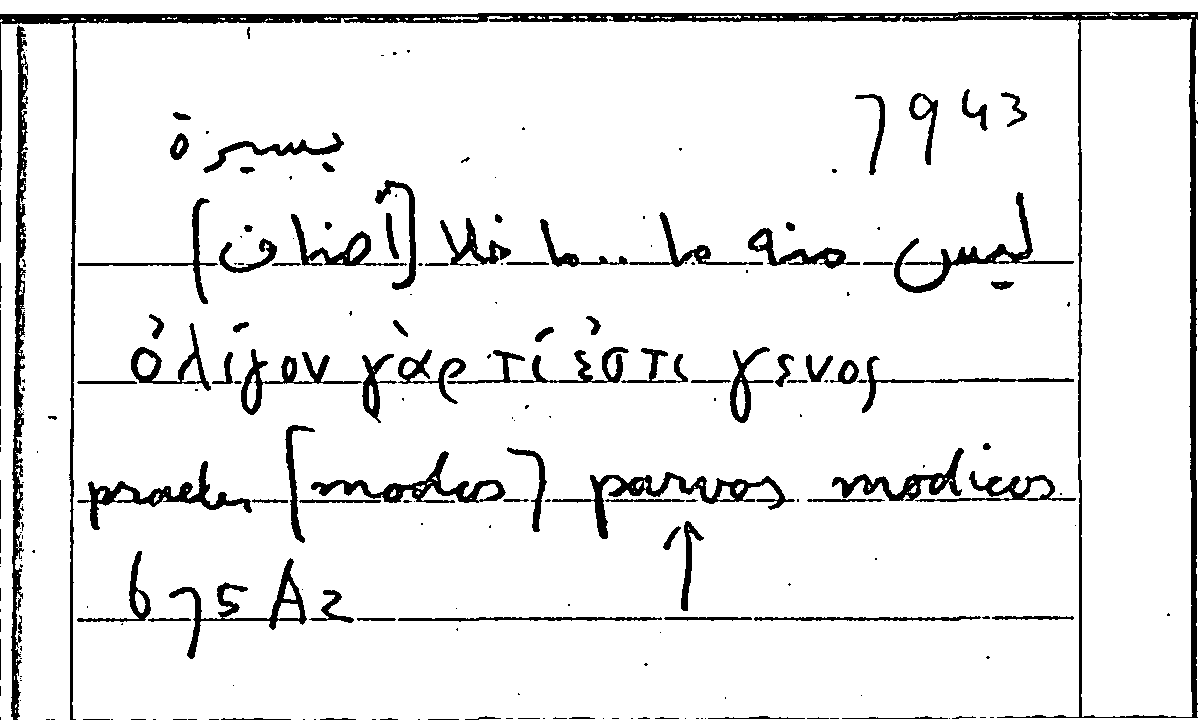 7943
يسيرة
ليس منه ما .. ما خلا [أصنافا]
ὀλίγον γὰρ τί ἐστι γενος
praeter [modos] parvos modicos
↑
675 A2